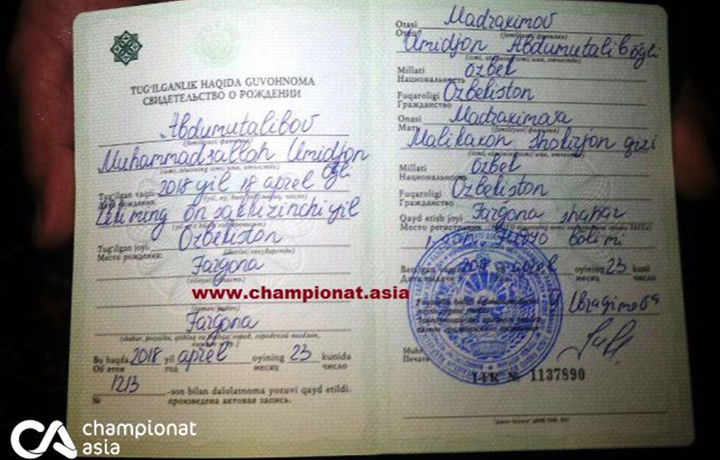 TUG'ILGANLIK HAQIDA GUVOHNOMA
СВИДЕТЕЛЬСТВО О РОЖДЕНИИ
Abdumutalibov
Muhammadzalloh Umidjon
o'g'li
Tug'ilgan vaqti 2018 yil 18 aprel
Дата рождения
ikki ming on sakkizinchi yil
Tug'ilgan joyi O'zbekiston
Место рождения
Farg'ona
www.championat.asia
Farg'ona
Bu haqda 2018 yil aprel oyining 23 kunida
Об этом год месяц число
№ 1213 -son bilan dalolatnoma yozuvi qayd etildi.
произведена актовая запись.
CA championat
asia
Otasi Madraximov
Отец
Umidjon Abdumutalib o'g'li
Millati o'zbek
Национальность
Fuqaroligi O'zbekiston
Гражданство
Onasi Madraximova
Мать
Malikaxon Shokirjon qizi
Millati o'zbek
Национальность
Fuqaroligi O'zbekiston
Гражданство
Qayd etish joyi Farg'ona shahar
Место регистрации
bo'limi
Berilgan vaqti 2018 yil aprel oyining 23 kuni
Дата выдачи месяц число
Ibragimova
Печать
№ 1137890